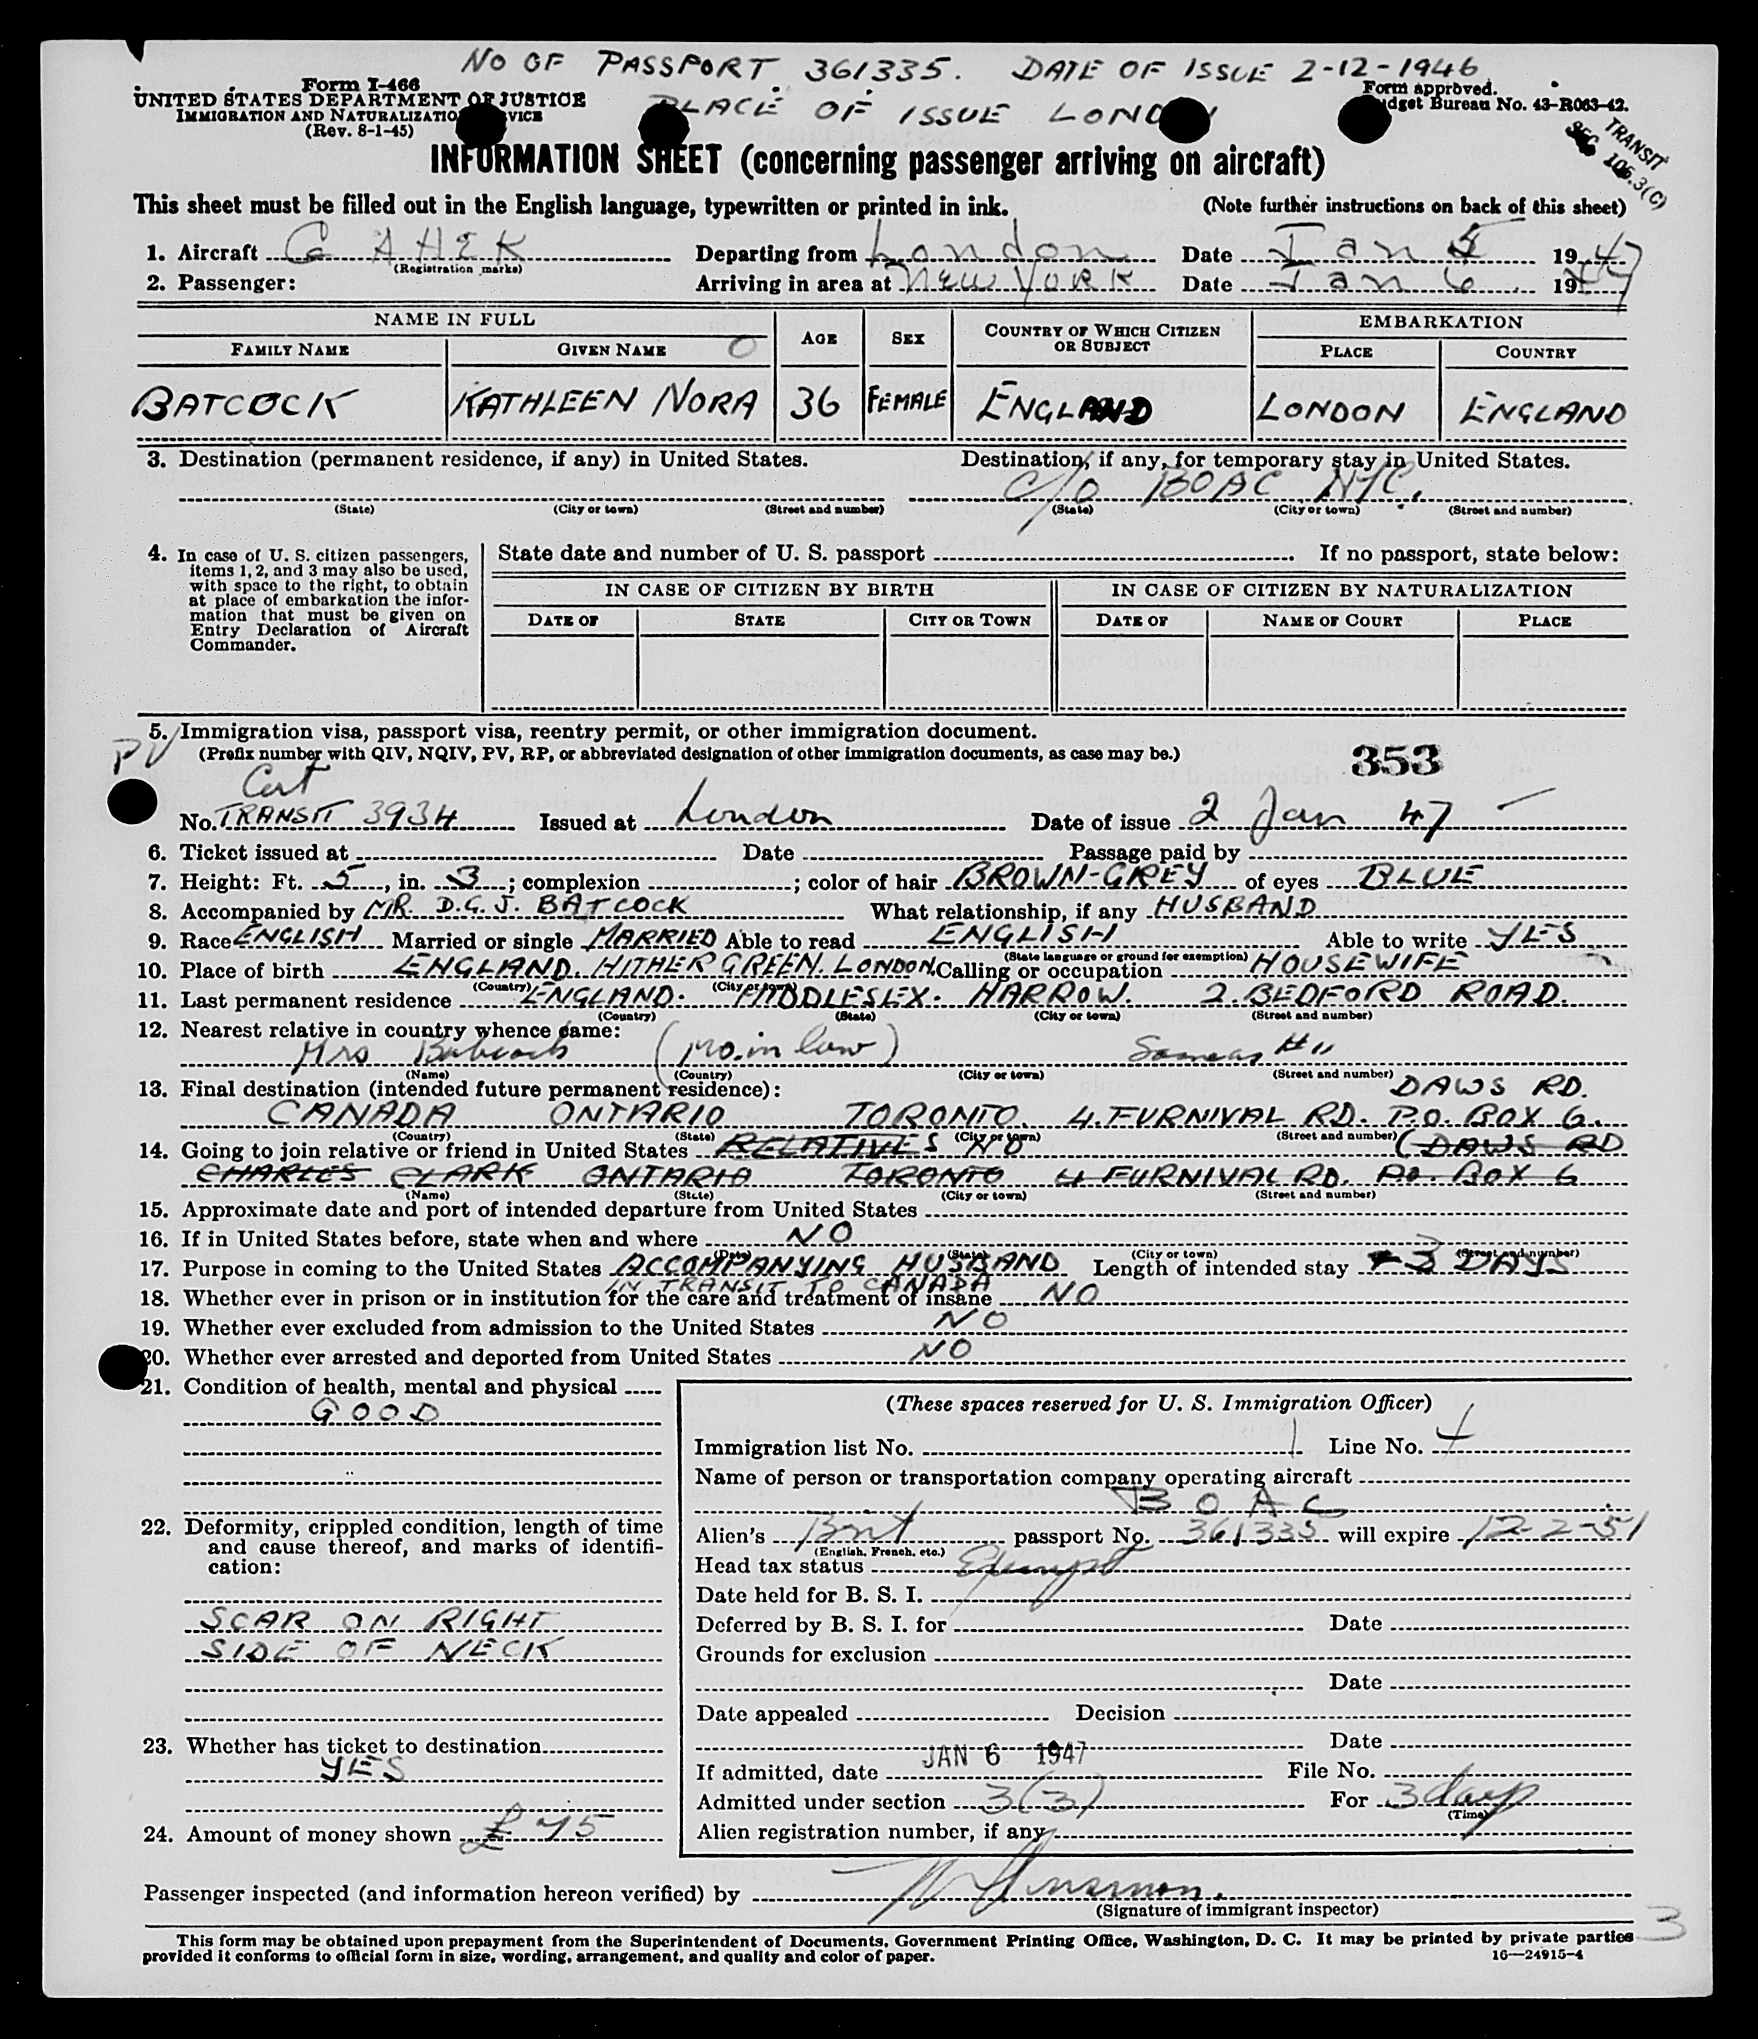 NO OF PASSPORT 361335. DATE OF ISSUE 2-12-1946
PLACE OF ISSUE LONDON
Form I-466
UNITED STATES DEPARTMENT OF JUSTICE
IMMIGRATION AND NATURALIZATION SERVICE
(Rev. 8-1-45)
Form approved.
Budget Bureau No. 43-R063-42.
TRANSIT
SEC 106.3(C)
INFORMATION SHEET (concerning passenger arriving on aircraft)
This sheet must be filled out in the English language, typewritten or printed in ink. (Note further instructions on back of this sheet)
1. Aircraft G AHEK Departing from London Date Jan 5 1947
(Registration marks)
2. Passenger: Arriving in area at NEW YORK Date Jan 6 1947
NAME IN FULL AGE SEX COUNTRY OF WHICH CITIZEN OR SUBJECT EMBARKATION
FAMILY NAME GIVEN NAME O PLACE COUNTRY
BATCOCK KATHLEEN NORA 36 FEMALE ENGLAND LONDON ENGLAND
3. Destination (permanent residence, if any) in United States. Destination, if any, for temporary stay in United States.
C/O BOAC NYC.
(State) (City or town) (Street and number) (State) (City or town) (Street and number)
4. In case of U. S. citizen passengers, items 1, 2, and 3 may also be used, with space to the right, to obtain at place of embarkation the information that must be given on Entry Declaration of Aircraft Commander.
State date and number of U. S. passport If no passport, state below:
IN CASE OF CITIZEN BY BIRTH IN CASE OF CITIZEN BY NATURALIZATION
DATE OF STATE CITY OR TOWN DATE OF NAME OF COURT PLACE
5. Immigration visa, passport visa, reentry permit, or other immigration document.
PV (Prefix number with QIV, NQIV, PV, RP, or abbreviated designation of other immigration documents, as case may be.) 353
Cert
No. TRANSIT 3934 Issued at London Date of issue 2 Jan 47
6. Ticket issued at Date Passage paid by
7. Height: Ft. 5, in. 3; complexion ; color of hair BROWN-GREY of eyes BLUE
8. Accompanied by MR. D.G.J. BATCOCK What relationship, if any HUSBAND
9. Race ENGLISH Married or single MARRIED Able to read ENGLISH Able to write YES
(State language or ground for exemption)
10. Place of birth ENGLAND. HITHER GREEN. LONDON. Calling or occupation HOUSEWIFE
(Country) (City or town)
11. Last permanent residence ENGLAND. MIDDLESEX. HARROW. 2. BEDFORD ROAD.
(Country) (State) (City or town) (Street and number)
12. Nearest relative in country whence came:
Mrs (Mo. in law) #11
(Name) (Country) (City or town) (Street and number)
13. Final destination (intended future permanent residence): DAWS RD.
CANADA ONTARIO TORONTO. 4. FURNIVAL RD. P.O. BOX 6.
(Country) (State) (City or town) (Street and number)
14. Going to join relative or friend in United States RELATIVES NO (DAWS RD
CHARLES CLARK ONTARIO TORONTO 4 FURNIVAL RD. P.O. BOX 6
(Name) (State) (City or town) (Street and number)
15. Approximate date and port of intended departure from United States
16. If in United States before, state when and where NO
(Date) (State) (City or town) (Street and number)
17. Purpose in coming to the United States ACCOMPANYING HUSBAND Length of intended stay 3 DAYS
IN TRANSIT TO CANADA
18. Whether ever in prison or in institution for the care and treatment of insane NO
19. Whether ever excluded from admission to the United States NO
20. Whether ever arrested and deported from United States NO
21. Condition of health, mental and physical
GOOD
22. Deformity, crippled condition, length of time and cause thereof, and marks of identification:
SCAR ON RIGHT
SIDE OF NECK
23. Whether has ticket to destination
YES
24. Amount of money shown £ 75
(These spaces reserved for U. S. Immigration Officer)
Immigration list No. 1 Line No. 4
Name of person or transportation company operating aircraft
BOAC
Alien's Brit passport No. 361335 will expire 12-2-51
(English, French, etc.)
Head tax status Exempt
Date held for B. S. I.
Deferred by B. S. I. for Date
Grounds for exclusion
Date
Date appealed Decision
Date
If admitted, date JAN 6 1947 File No.
Admitted under section 3(3) For 3 days
(Time)
Alien registration number, if any
Passenger inspected (and information hereon verified) by
(Signature of immigrant inspector)
3
This form may be obtained upon prepayment from the Superintendent of Documents, Government Printing Office, Washington, D. C. It may be printed by private parties
provided it conforms to official form in size, wording, arrangement, and quality and color of paper. 16—24915-4